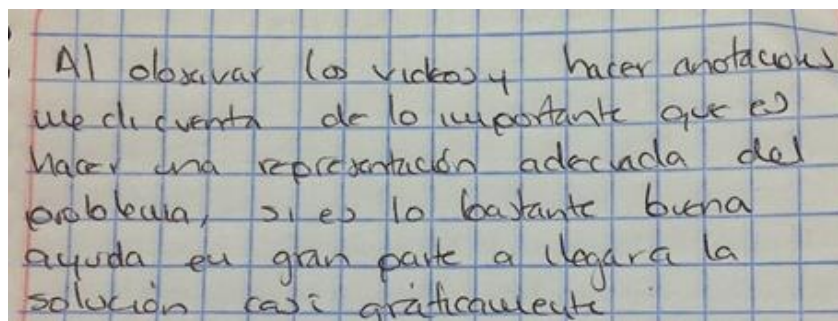 Al observar los videos y hacer anotaciones
me di cuenta de lo importante que es
hacer una representación adecuada del
problema, si es lo bastante buena
ayuda en gran parte a llegar a la
solución casi gráficamente.